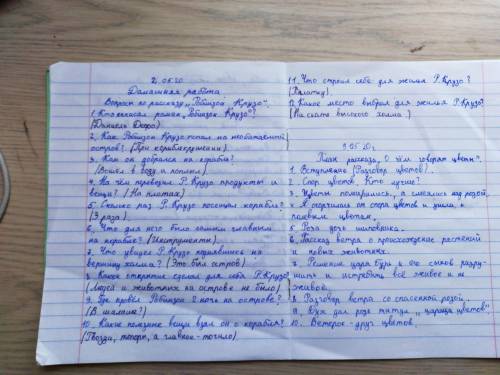 2.05.20.
Домашняя работа
Вопросы по рассказу "Робинзон Крузо".
1. Кто написал роман "Робинзон Крузо"?
(Даниель Дефо)
2. Как Робинзон Крузо попал на необитаемый
остров? (При кораблекрушении)
3. Как он добрался на корабль?
(Вошел в воду и поплыл)
4. На чём перевозил Р. Крузо продукты и
вещи? (На плотах)
5. Сколько раз Р. Крузо посещал корабль?
(3 раза)
6. Что для него было самым главным
на корабле? (Инструменты)
7. Что увидел Р. Крузо поднявшись на
вершину холма? (Это был остров)
8. Какое открытие сделал для себя Р. Крузо?
(Людей и животных на острове не было)
9. Где провёл Робинзон 2 ночь на острове?
(В шалаше)
10. Какие полезные вещи взял он с корабля?
(Гвозди, топоры, а главное - точило)
11. Что строил себе для жилья Р. Крузо?
(Палатку)
12. Какое место выбрал для жилья Р. Крузо?
(На скате высокого холма.)
9.05.20.
План рассказа, О чём говорят цветы".
1. Вступление (Разговор цветов)
2. Спор цветов, Кто лучше?
3. Цветы понадулись, а смеялись над розой.
4. Я огорчилась от спора цветов и ушла, к
полевым цветам.
5. Роза дочь шиповника.
6. Рассказ ветра о происхождении растений
и новых животных.
7. Решение царя бурь и его сынов разру-
шить и истребить всё живое и не
живое.
8. Разговор ветра со спасенной розой
9. Дух дал розе титул "царица цветов"
10. Ветерок - друг цветов.